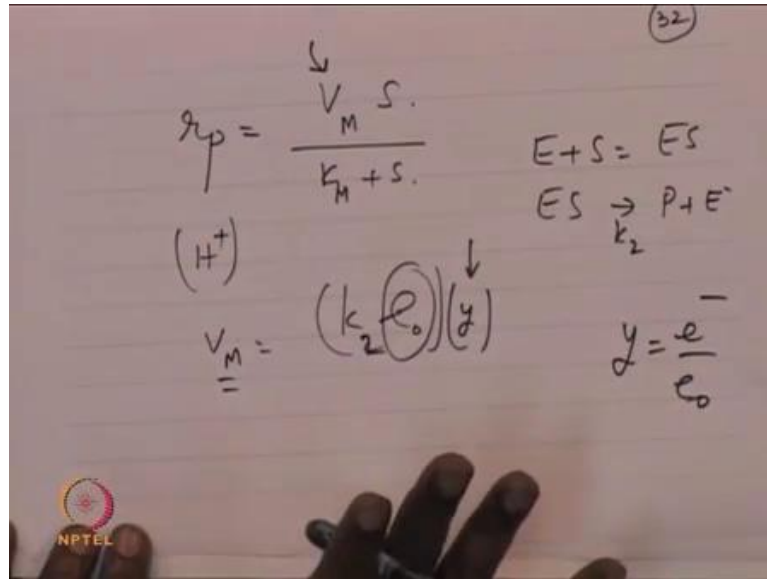 32
r_p = V_M S. / K_M + S.
E + S = ES
ES → P + E⁻
k_2
(H⁺)
V_M = (k_2 e_0)(y)
y = e⁻ / e_0
NPTEL